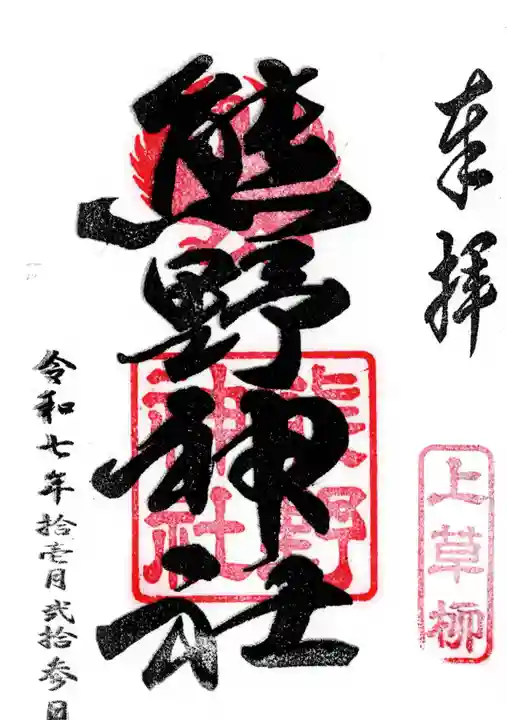 奉拝
上草柳
熊野神社
熊野
神社
令和七年拾壱月弐拾参日